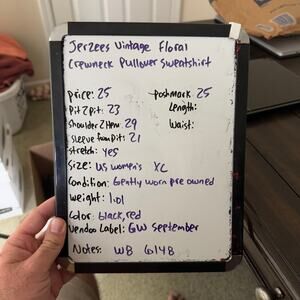 Jerzees Vintage Floral
Crewneck Pullover Sweatshirt
price: 25 postmark 25
Pit 2 pit: 23 Length:
Shoulder 2 Hem: 29 Waist:
Sleeve from pit: 21
stretch: yes
Size: US women's XL
Condition: Gently worn pre owned
weight: 1.01
Color: black, red
Vendoo Label: GW September
Notes: WB 6148